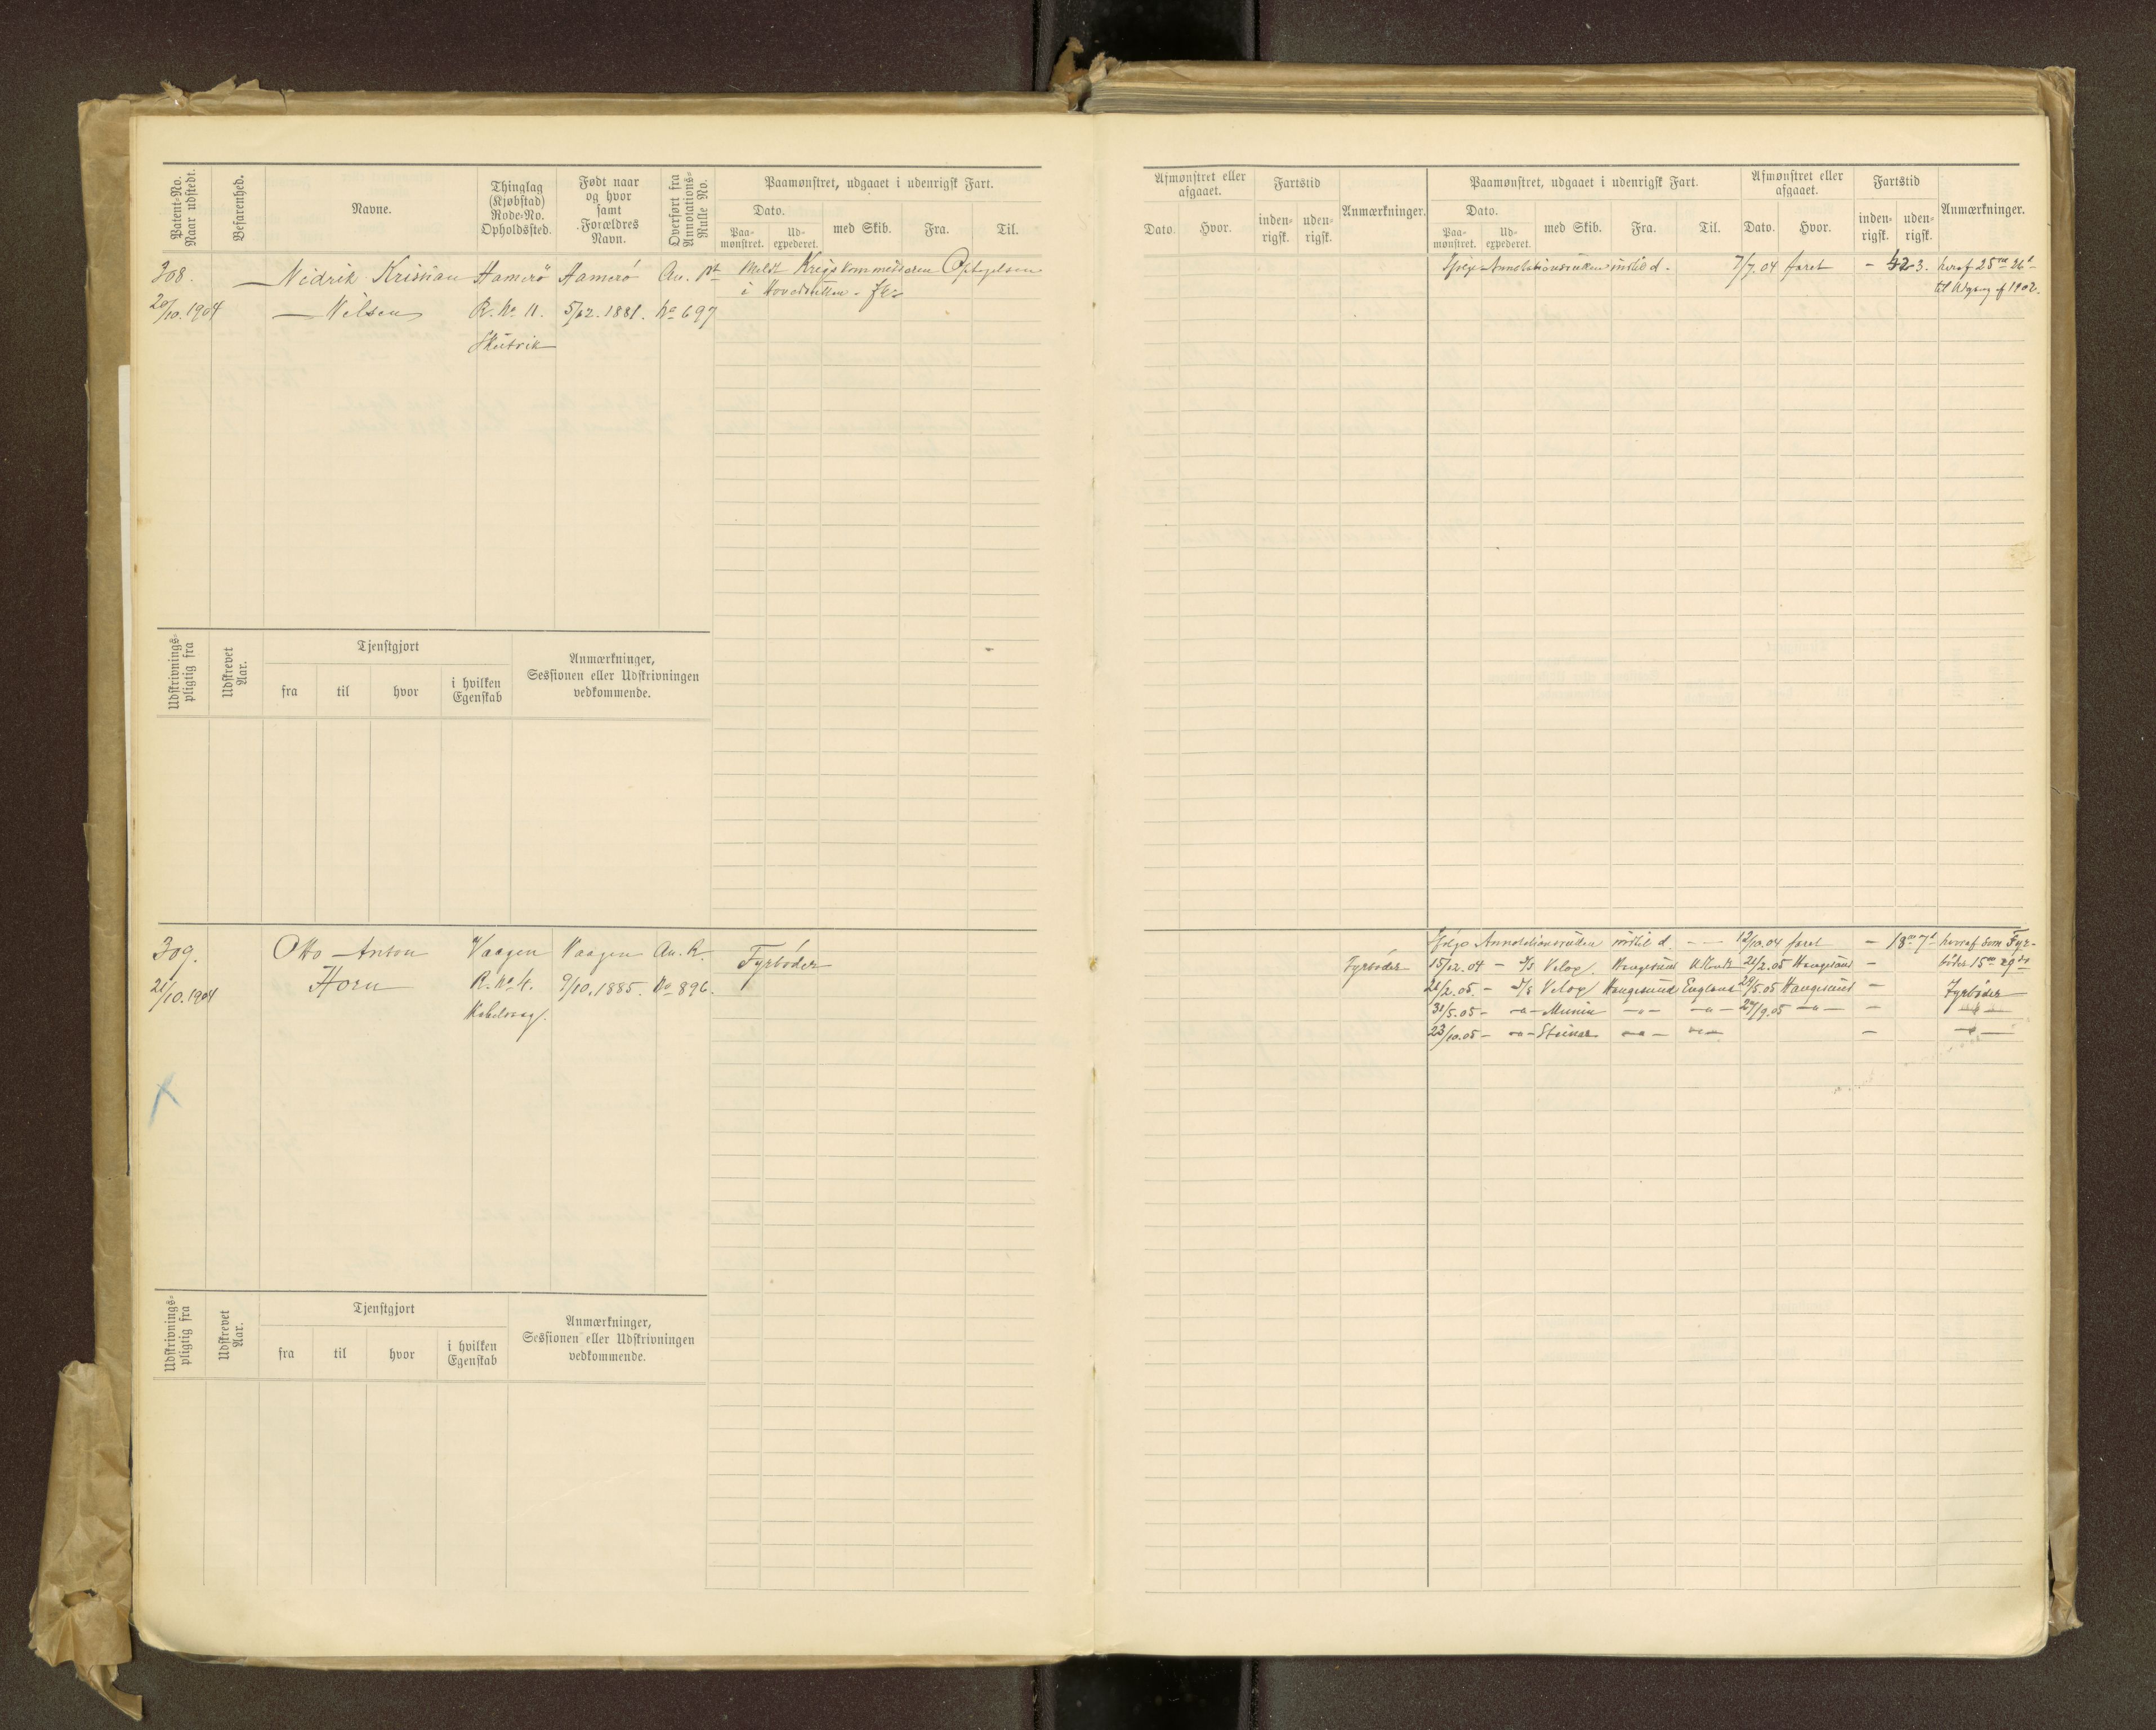 Patent-No. Naar udstedt.
Befarenhed.
Navne.
Thinglag (Kjøbstad) Rode-No. Opholdssted.
Født naar og hvor samt Forældres Navn.
Overført fra Annotations-Rulle No.
Paamønstret, udgaaet i udenrigsk Fart.
Dato.
Paa-mønstret.
Ud-expederet.
med Skib.
Fra.
Til.
308.
20/10. 1904
Nidrik Krissian
Nilsen
Hamerö
R. No 11.
Skutvik
Hamerö
5/12. 1881.
An. R
No 697
Meldt Krigskommissæren Optagelsen
i Hovedrullen.
Udskrivnings-pligtig fra
Udskrevet Aar.
Tjenstgjort
fra
til
hvor
i hvilken Egenskab
Anmærkninger, Sessionen eller Udskrivningen vedkommende.
309.
21/10. 1904
Otto Anton
Horn
Vaagen
R. No 4.
Kabelvaag.
Vaagen
9/10. 1885.
An. R.
No 896.
Fyrbøder
Udskrivnings-pligtig fra
Udskrevet Aar.
Tjenstgjort
fra
til
hvor
i hvilken Egenskab
Anmærkninger, Sessionen eller Udskrivningen vedkommende.
Afmønstret eller afgaaet.
Dato.
Hvor.
Fartstid
inden-rigsk.
uden-rigsk.
Anmærkninger.
Paamønstret, udgaaet i udenrigsk Fart.
Dato.
Paa-mønstret.
Ud-expederet.
med Skib.
Fra.
Til.
Afmønstret eller afgaaet.
Dato.
Hvor.
Fartstid
inden-rigsk.
uden-rigsk.
Anmærkninger.
Ifølge Annotationsrullen indtil d. 7/7. 04 faret - 42-3. heraf 25 m 26 d
til Udgang af 1902.
Ifølge Annotationsrullen indtil d. - - 12/10. 04 faret - 18 m 7 d hvoraf som Fyr-
Fyrbøder 15/12. 04 - S/S Velox. Haugesund 21/2. 05 Haugesund - bøder 15 m 29 d
21/2. 05. - S/S Velox Haugesund England 29/5. 05 Haugesund - Fyrbøder
31/5. 05 - -"- Munin -"- -"- 27/9. 05 -"- - -"-
23/10. 05 - -"- Steinar -"- -"- - -"-